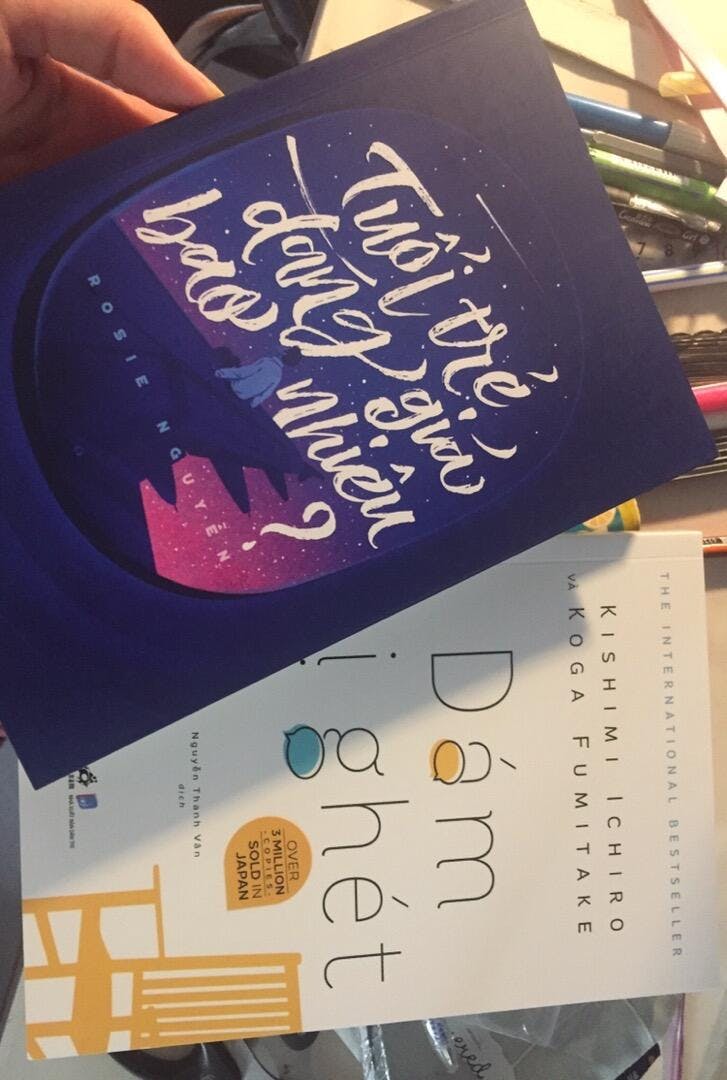 Tuổi trẻ
đáng giá
bao nhiêu?
ROSIE NGUYỄN
THE INTERNATIONAL BESTSELLER
KISHIMI ICHIRO
VÀ KOGA FUMITAKE
Dám
ị ghét
OVER
3 MILLION
·COPIES·
SOLD IN
JAPAN
Nguyễn Thanh Vân
dịch
7 8